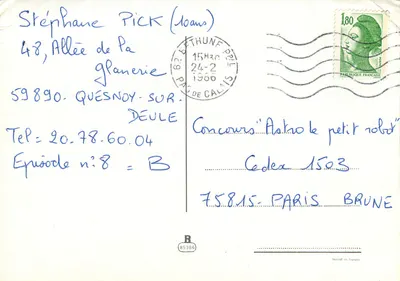 Stéphane PICK (10ans)
48, Allée de la
glanerie
59890 - QUESNOY-SUR-
DEULE
Tel = 20.78.60.04
Episode n°8 = B
62 BETHUNE PPAL
15H30
24-2
1986
PAS DE CALAIS
1,80
REPUBLIQUE FRANÇAISE
Concours "Astro le petit robot"
Cedex 1503
75815 - PARIS BRUNE